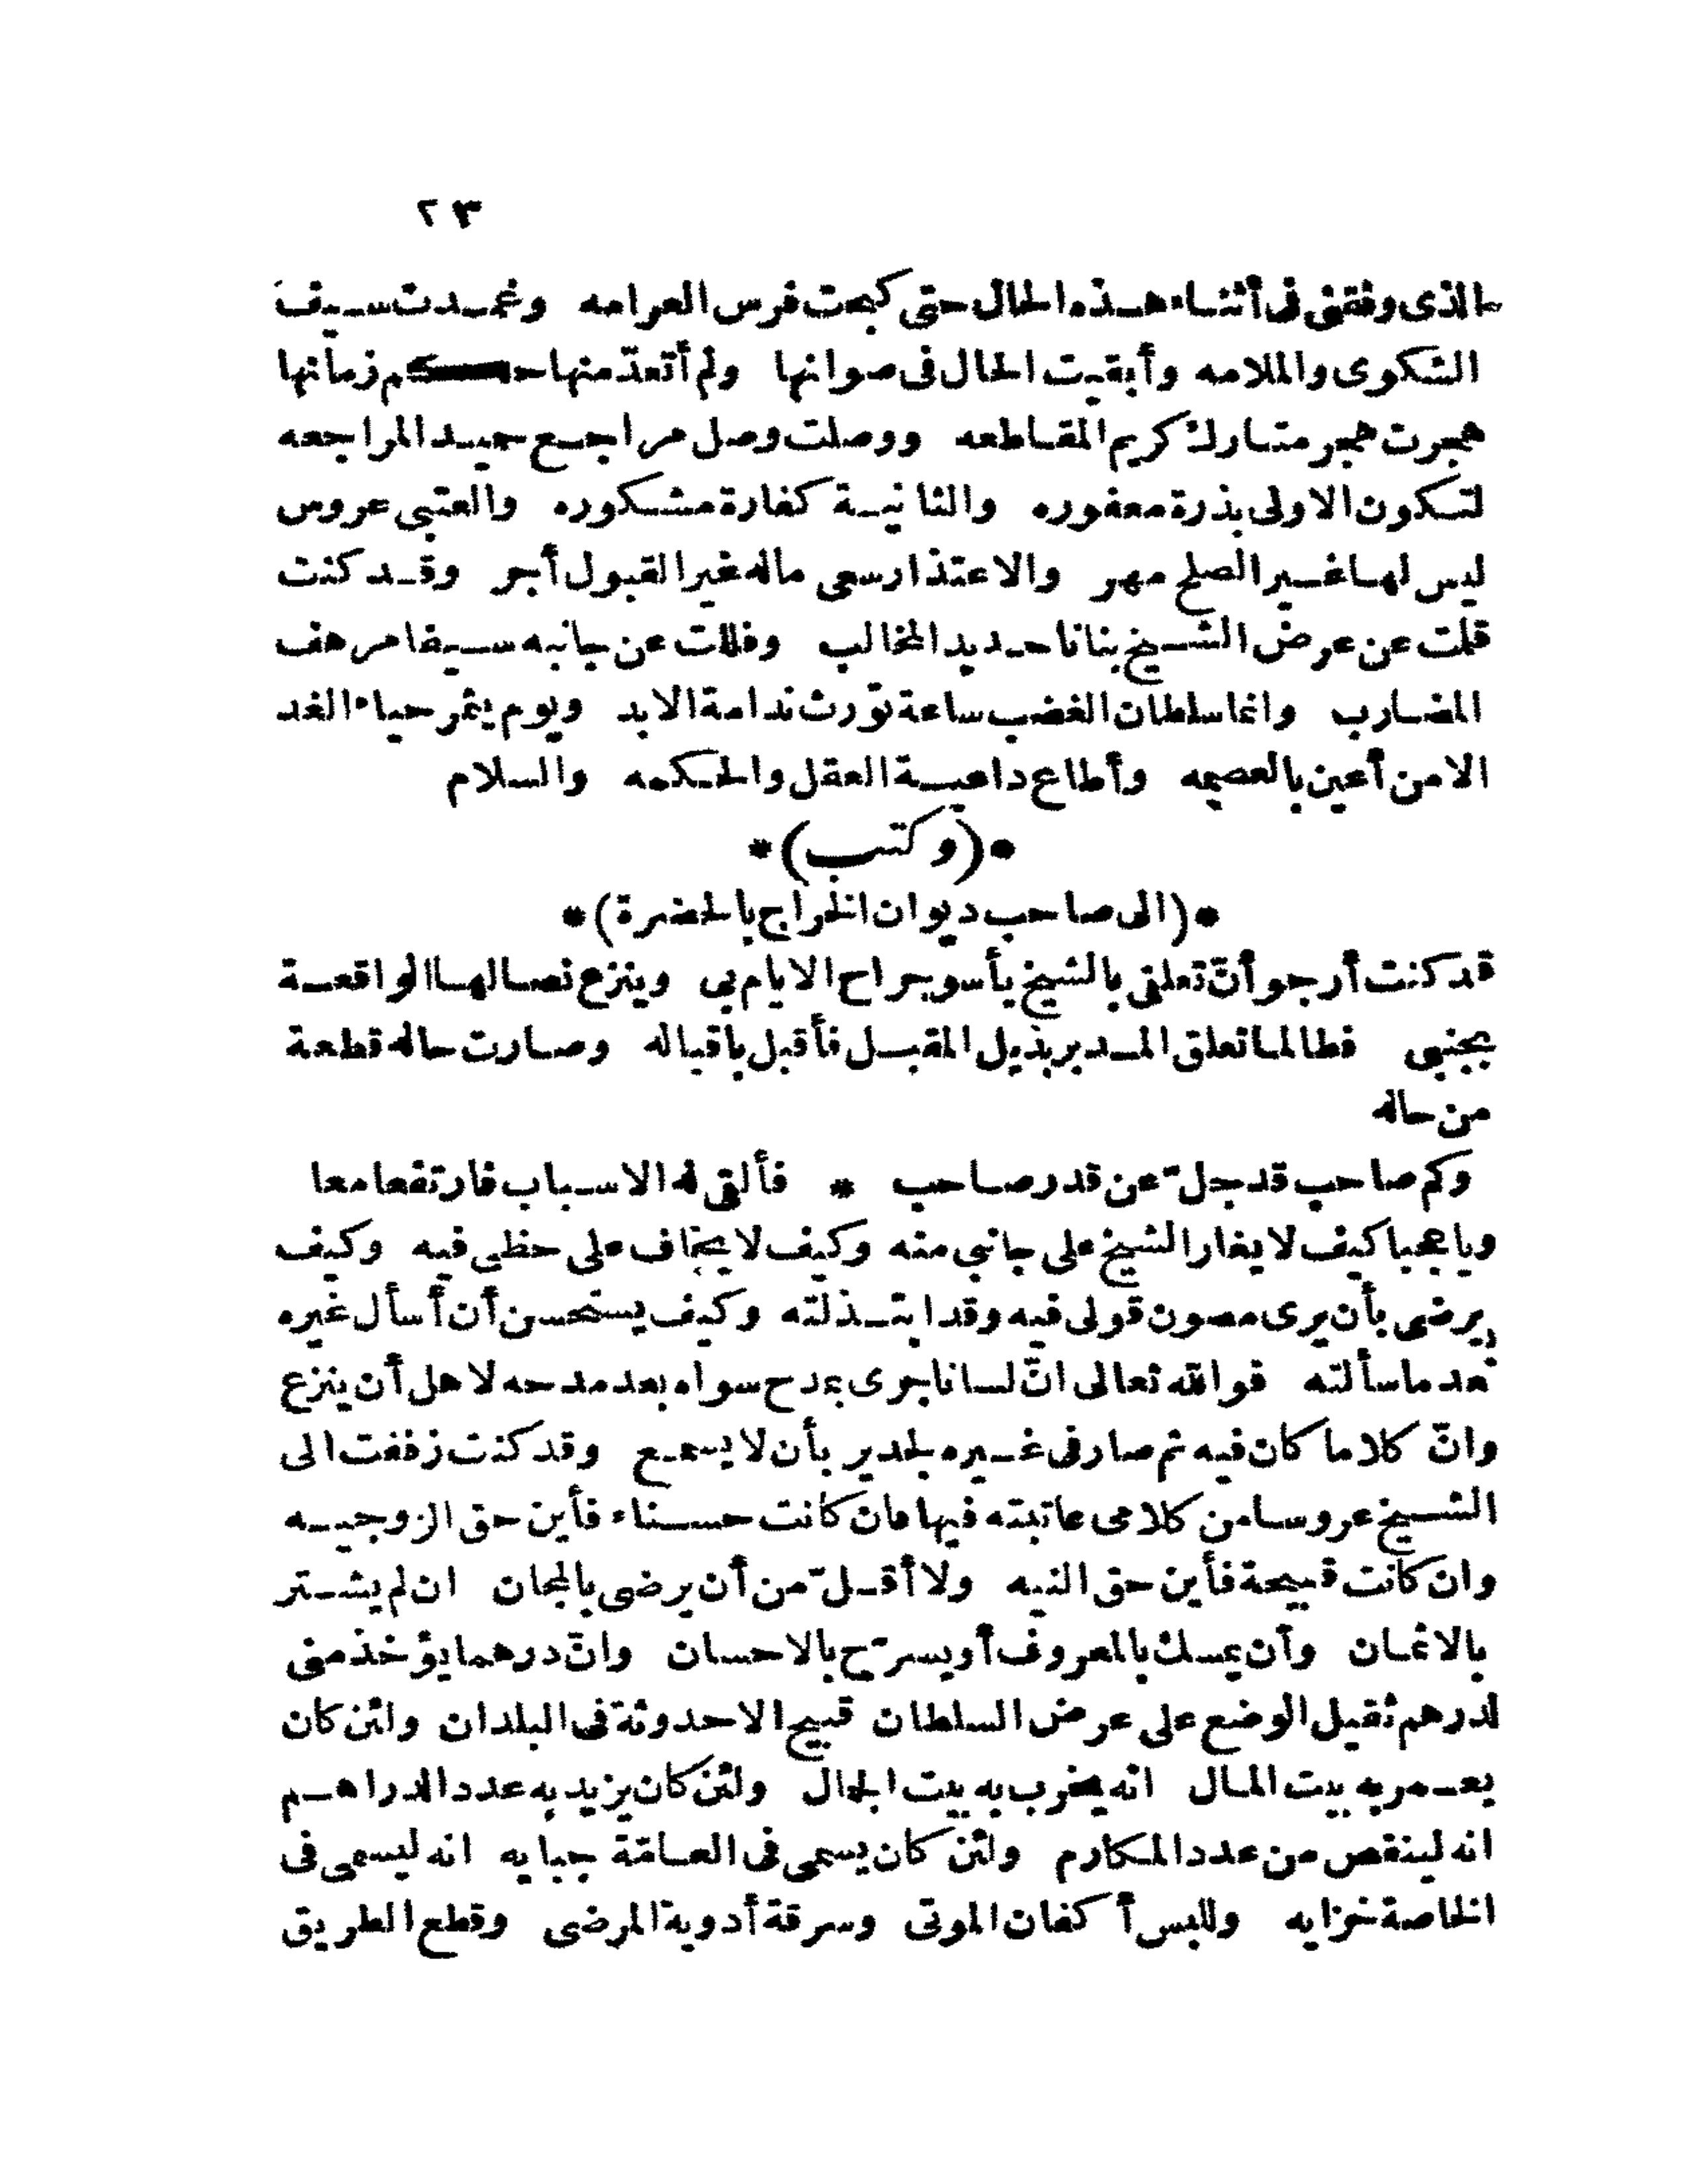 ٢٣
الذى وفقنى فى أثناء هذه الحال حتى كبحت فرس العرامه وغمدت سيف
الشكوى والملامه وأبقيت الحال فى صوانها ولم أتعدّ منها حكم زمانها
هجرت هجر متارك كريم المقاطعه ووصلت وصل مراجع حميد المراجعه
لتكون الاولى بذرة مغفوره والثانية كفارة مشكوره والعتبى عروس
ليس لها غير الصلح مهر والاعتذار سعى ماله غير القبول أجر وقد كنت
قلمت عن عرض الشيخ بنانا حديد المخالب وفللت عن جانبه سيفا مرهف
المضارب وانما سلطان الغضب ساعة تورث ندامة الابد ويوم يثمر حياء الغد
الا من أعين بالعصمه وأطاع داعية العقل والحكمه والسلام
*(وكتب)*
*(الى صاحب ديوان الخراج بالحضرة)*
قد كنت أرجو أنّ تعلقى بالشيخ يأسو جراح الايام بى وينزع نصالها الواقعة
بجنبى فطالما تعلق المدبر بذيل المقبل فأقبل باقباله وصارت حاله قطعة
من حاله
وكم صاحب قد جلّ عن قدر صاحب * فألقى له الاسباب فارتفعا معا
ويا عجبا كيف لا يغار الشيخ على جانبى منه وكيف لا يخاف على حظى فيه وكيف
يرضى بأن يرى مصون قولى فيه وقد ابتذلته وكيف يستحسن أن أسأل غيره
بعد ما سألته فوالله تعالى انّ لسانا جرى بمدح سواه بعد مدحه لاهل أن ينزع
وانّ كلاما كان فيه ثم صار فى غيره لجدير بأن لا يسمع وقد كنت زففت الى
الشيخ عروسا من كلامى عاتبته فيها فان كانت حسناء فأين حق الزوجيه
وان كانت قبيحة فأين حق النيه ولا أقلّ من أن يرضى بالمجان ان لم يشتر
بالاثمان وأن يمسك بالمعروف أو يسرّح بالاحسان وانّ درهما يؤخذ منى
لدرهم ثقيل الوضع على عرض السلطان قبيح الاحدوثة فى البلدان ولئن كان
يعمر به بيت المال انه يخرب به بيت الجمال ولئن كان يزيد به عدد الدراهم
انه لينقص من عدد المكارم ولئن كان يسمى فى العامّة جبايه انه ليسمى فى
الخاصة خزايه وللبس أكفان الموتى وسرقة أدوية المرضى وقطع الطريق